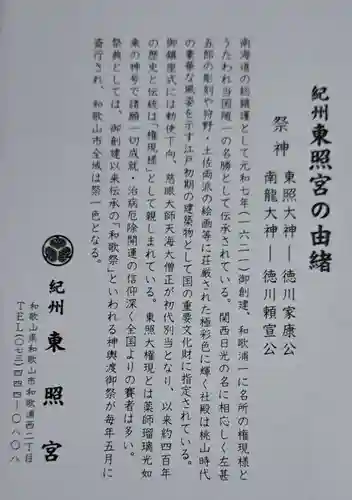 紀州東照宮の由緒
祭神 東照大神―徳川家康公
南龍大神―徳川頼宣公
南海道の総鎮護として元和七年(一六二一)御創建、和歌浦一に名所の権現様と
うたわれ当国随一の名勝として伝承されている。関西日光の名に相応しく左甚
五郎の彫刻や狩野・土佐両派の絵画等に荘厳された極彩色に輝く社殿は桃山時代
の豪華な風姿を示す江戸初期の建築物として国の重要文化財に指定されている。
御鎮座式には勅使下向、慈眼大師天海大僧正が初代別当となり、以来約四百年
の歴史と伝統は「権現様」として親しまれている。東照大権現とは薬師瑠璃光如
来の神号で諸願一切成就・治病厄除開運の信仰深く全国よりの賽者は多い。
祭典としては、御創建以来伝承の「和歌祭」といわれる神輿渡御祭が毎年五月に
斎行され、和歌山市全域は祭一色となる。
紀州東照宮
和歌山県和歌山市和歌浦西二丁目
TEL(〇七三)四四四―〇八〇八